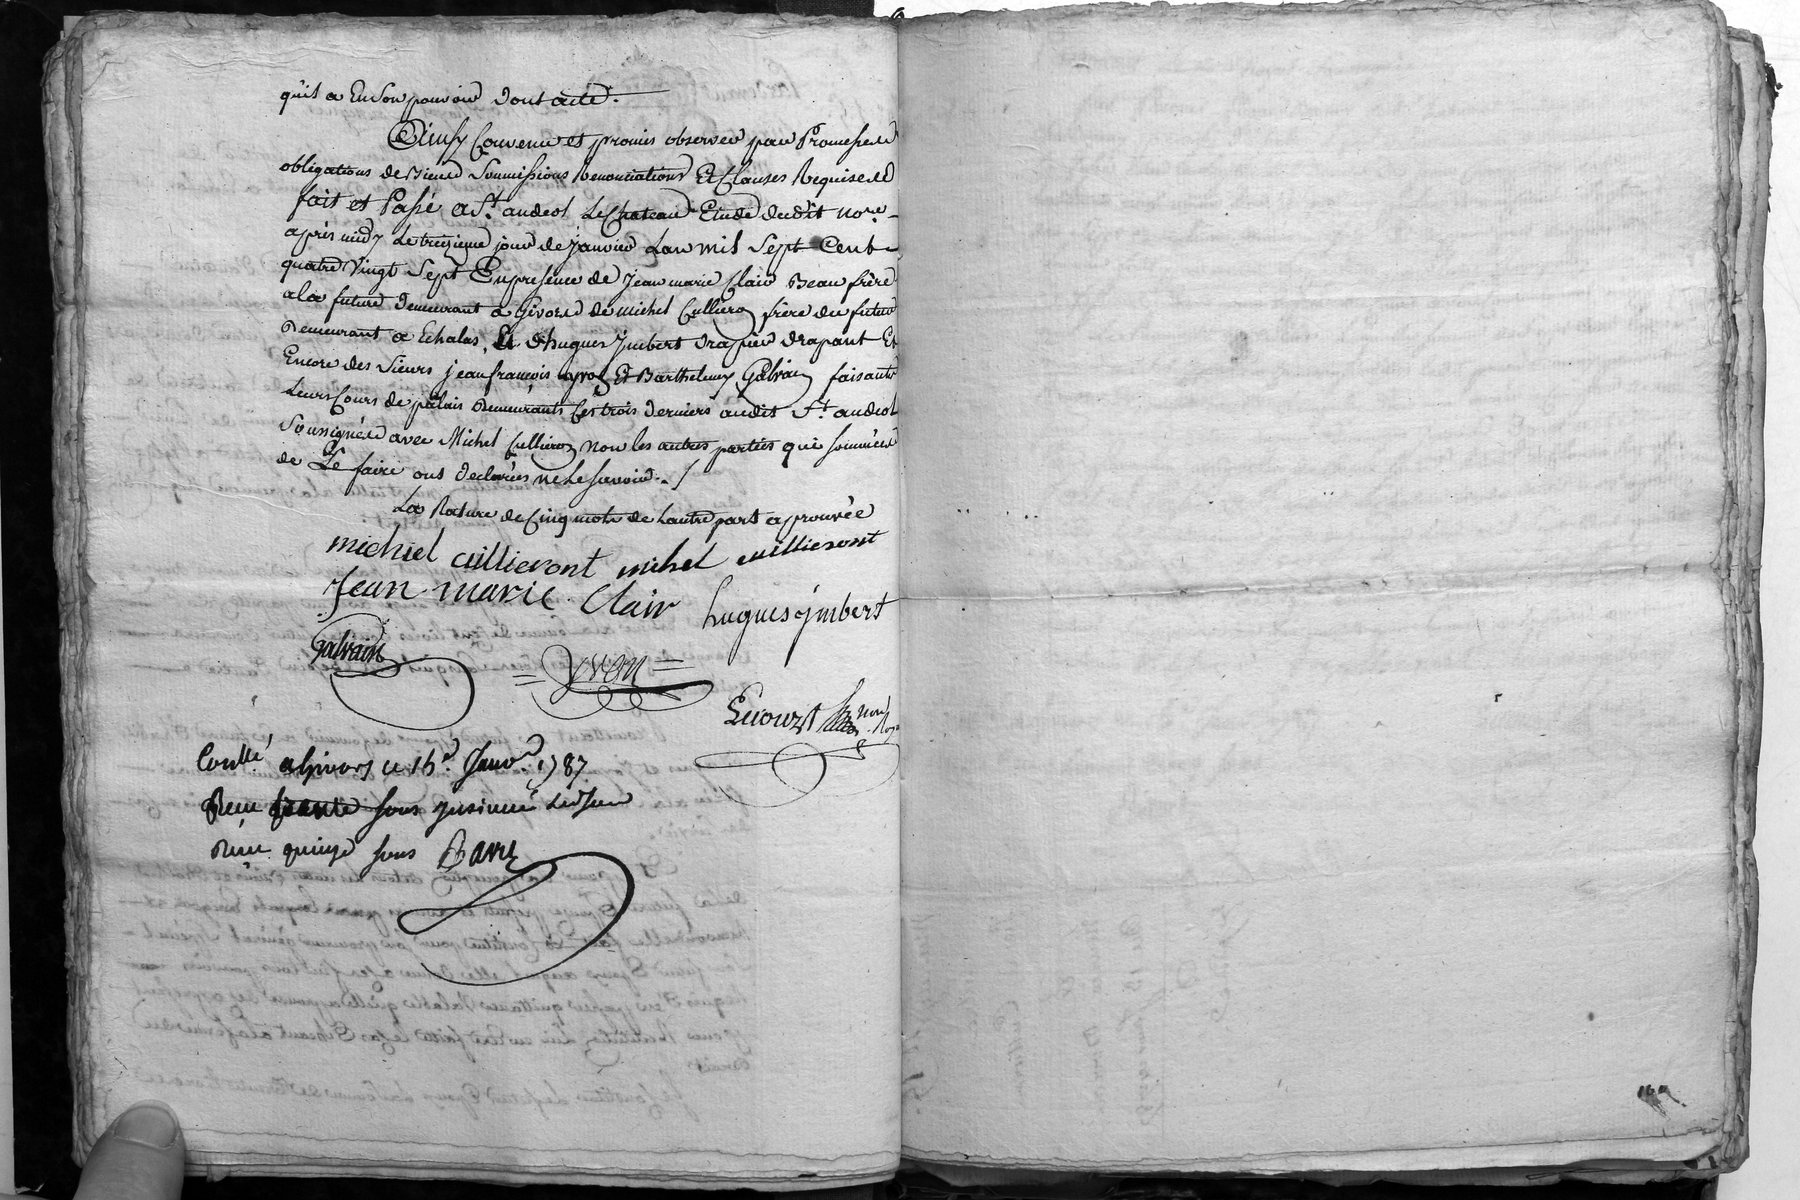 quil a En Son pouvoir dont acte.
Ainsy Convenu et promis observer par Promesses
obligations de Biens Soumissions Renonciations Et Clauses Requises
fait et Passé a St. andeol Le Chateau Etude dudit nore.
après midy Le treizieme jour de janvier L'an mil Sept Cent
quatre Vingt Sept En presence de Jean marie Clair Beau frère
a la future demeurant a Givors de michel Cullieron frère du futur
Demeurant a Echalas, Et d'hugues jmbert drapier drapant Et
Encore des Sieurs jean françois yvon Et Barthelemy Galvain faisants
Leurs Cours de palais Demeurants Ces trois derniers audit St. andeol
Soussignés avec Michel Cullieron non les autres parties qui Sommées
de Le faire ont declarées ne Le Savoir. /
La Rature de Cinq mots de L'autre part aprouvée
michiel cuillieront michel cuillieront
Jean marie Clair hugues jmbert
Galvain yvan
Ecourt nore. Roy.
Conllé a Givors ce 16e. Janvr. 1787
Reçu trente sous insinué led jour
Reçu quinze sous
164